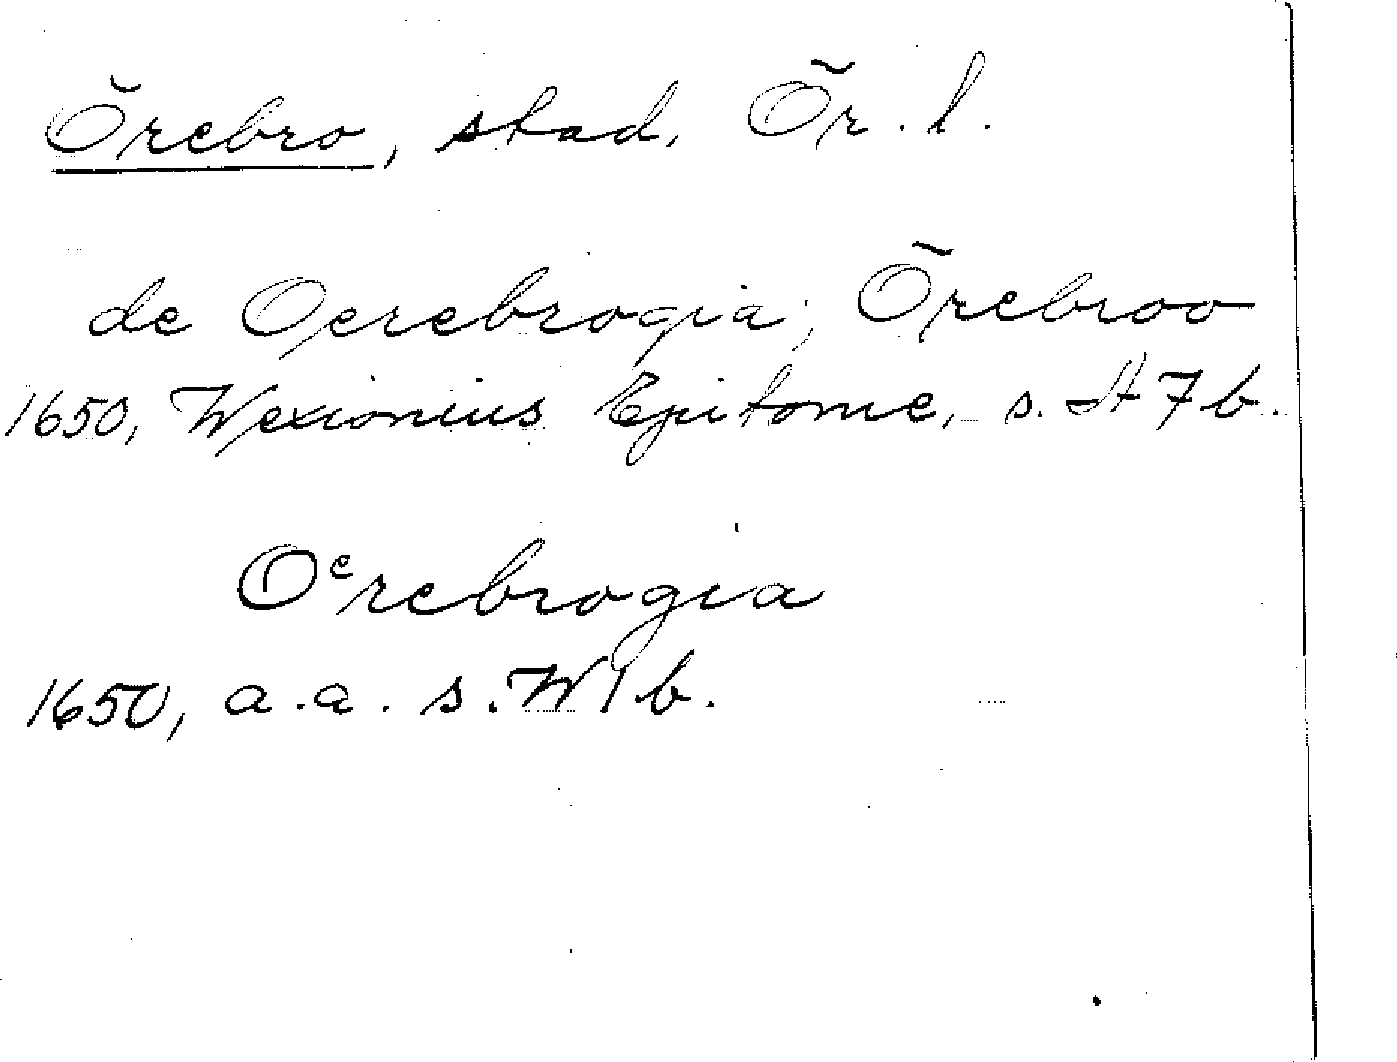 Örebro, stad, Ör. l.
de Oerebrogia; Örebroo
1650, Wexionius Epitome, s. H7b.
Oᵉrebrogia
1650, a.a. s. W1b.